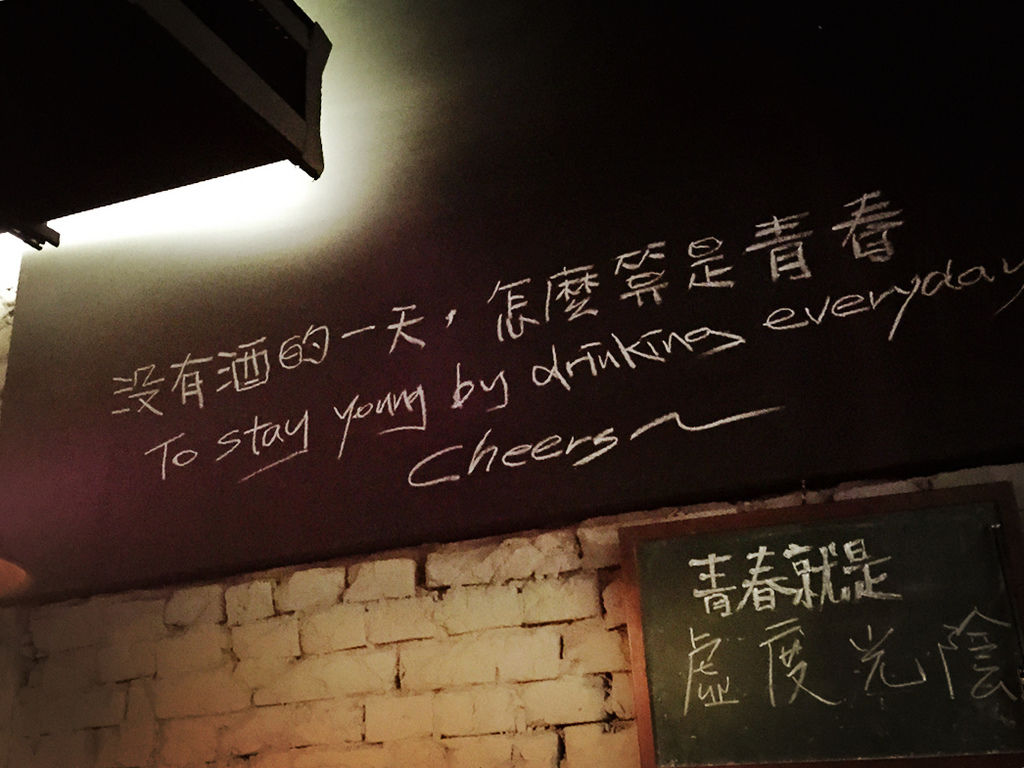 没有酒的一天，怎麼算是青春
To stay young by drinking everyday
Cheers~
青春就是
虛度光陰